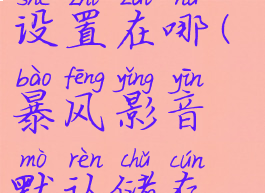 shè zhì zài nǎ
设置在哪(
bào fēng yǐng yīn
暴风影音
mò rèn chǔ cún
默认储存